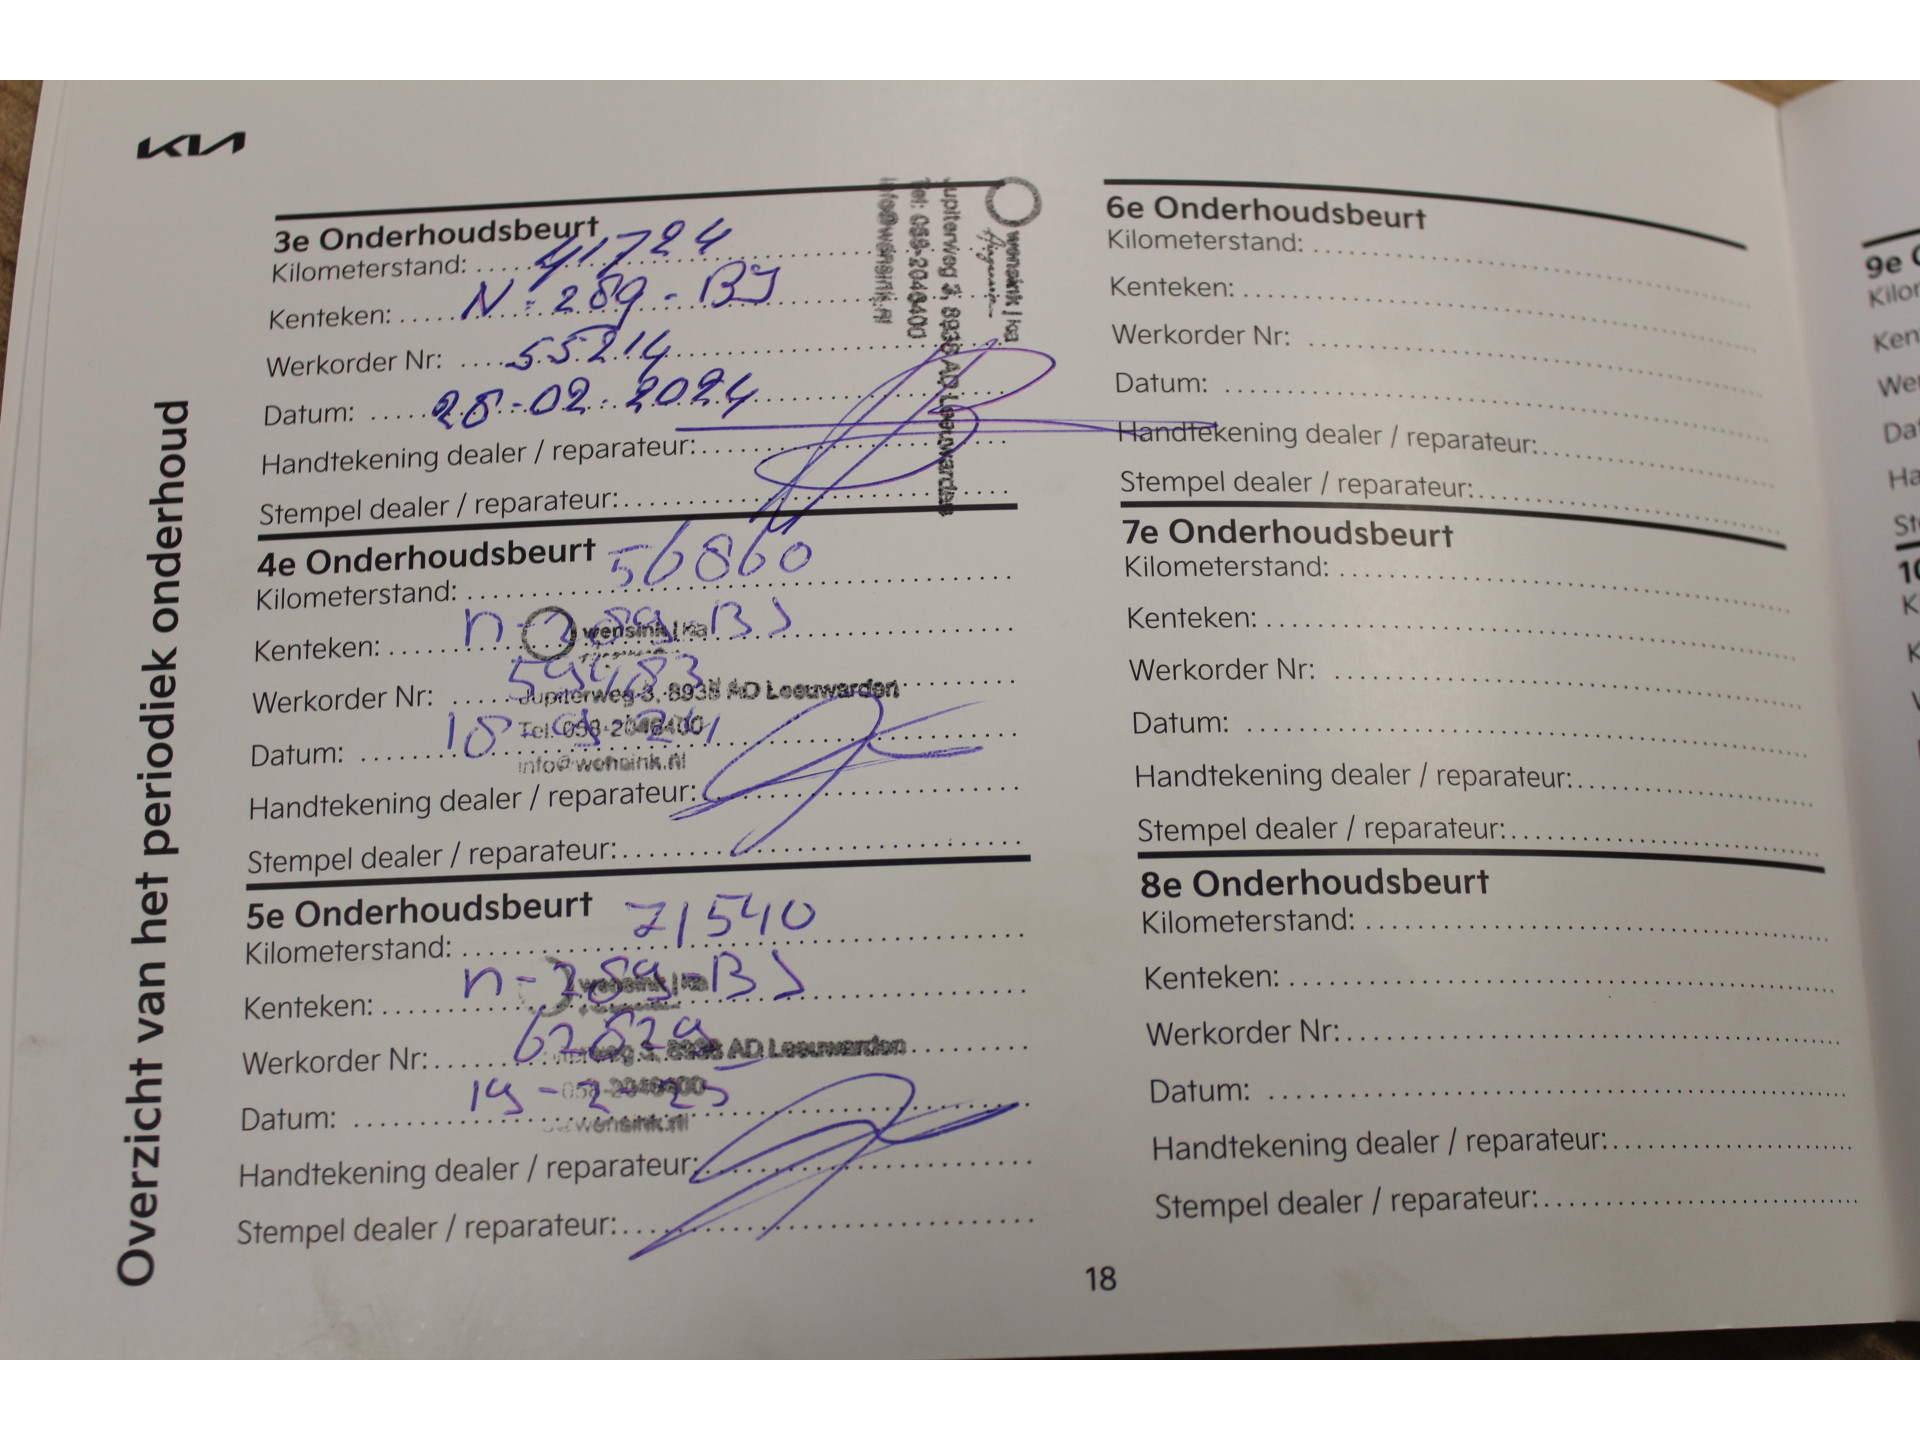 KIA
Overzicht van het periodiek onderhoud
3e Onderhoudsbeurt
Kilometerstand: 41724
Kenteken: N-289-BJ
Werkorder Nr: 55214
Datum: 28-02-2024
Handtekening dealer / reparateur:
Stempel dealer / reparateur:
wensink | kia
Jupiterweg 3, 8938 AD Leeuwarden
Tel: 058-2046400
info@wensink.nl
4e Onderhoudsbeurt
Kilometerstand: 56860
Kenteken: n-289-BJ
Werkorder Nr: 59483
Datum: 18-9-24
Handtekening dealer / reparateur:
Stempel dealer / reparateur:
wensink | kia
Jupiterweg 3, 8938 AD Leeuwarden
Tel: 058-2046400
info@wensink.nl
5e Onderhoudsbeurt
Kilometerstand: 71540
Kenteken: n-289-BJ
Werkorder Nr: 62829
Datum: 19-2-25
Handtekening dealer / reparateur:
Stempel dealer / reparateur:
wensink | kia
terweg 3, 8938 AD Leeuwarden
058-2046400
wensink.nl
6e Onderhoudsbeurt
Kilometerstand:
Kenteken:
Werkorder Nr:
Datum:
Handtekening dealer / reparateur:
Stempel dealer / reparateur:
7e Onderhoudsbeurt
Kilometerstand:
Kenteken:
Werkorder Nr:
Datum:
Handtekening dealer / reparateur:
Stempel dealer / reparateur:
8e Onderhoudsbeurt
Kilometerstand:
Kenteken:
Werkorder Nr:
Datum:
Handtekening dealer / reparateur:
Stempel dealer / reparateur:
18
9e
Kilo
Ken
We
Da
Ha
St
10
K
K